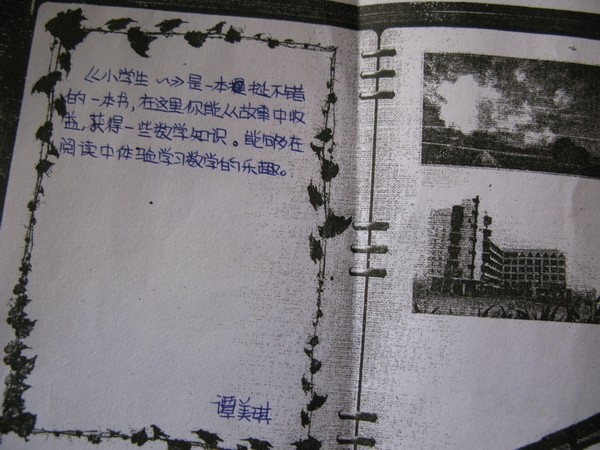 《小学生 〰》是一本挺不错
的一本书，在这里你能从故事中收
益，获得一些数学知识。能够在
阅读中体验学习数学的乐趣。
谭美琪